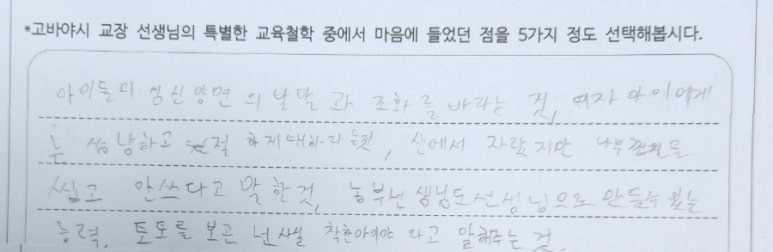 *고바야시 교장 선생님의 특별한 교육철학 중에서 마음에 들었던 점을 5가지 정도 선택해봅시다.
아이들의 정신 양면의 발달 과 조화를 바라는 것, 여자 아이에게
는 상냥하고 친절 하게대하라는것, 산에서 자랐지만
씹고 안쓰다고 말한것, 농부선생님도선생님으로 만들수 있는
능력, 토토를 보곤 넌사실 착한아이야 라고 말해주는 것